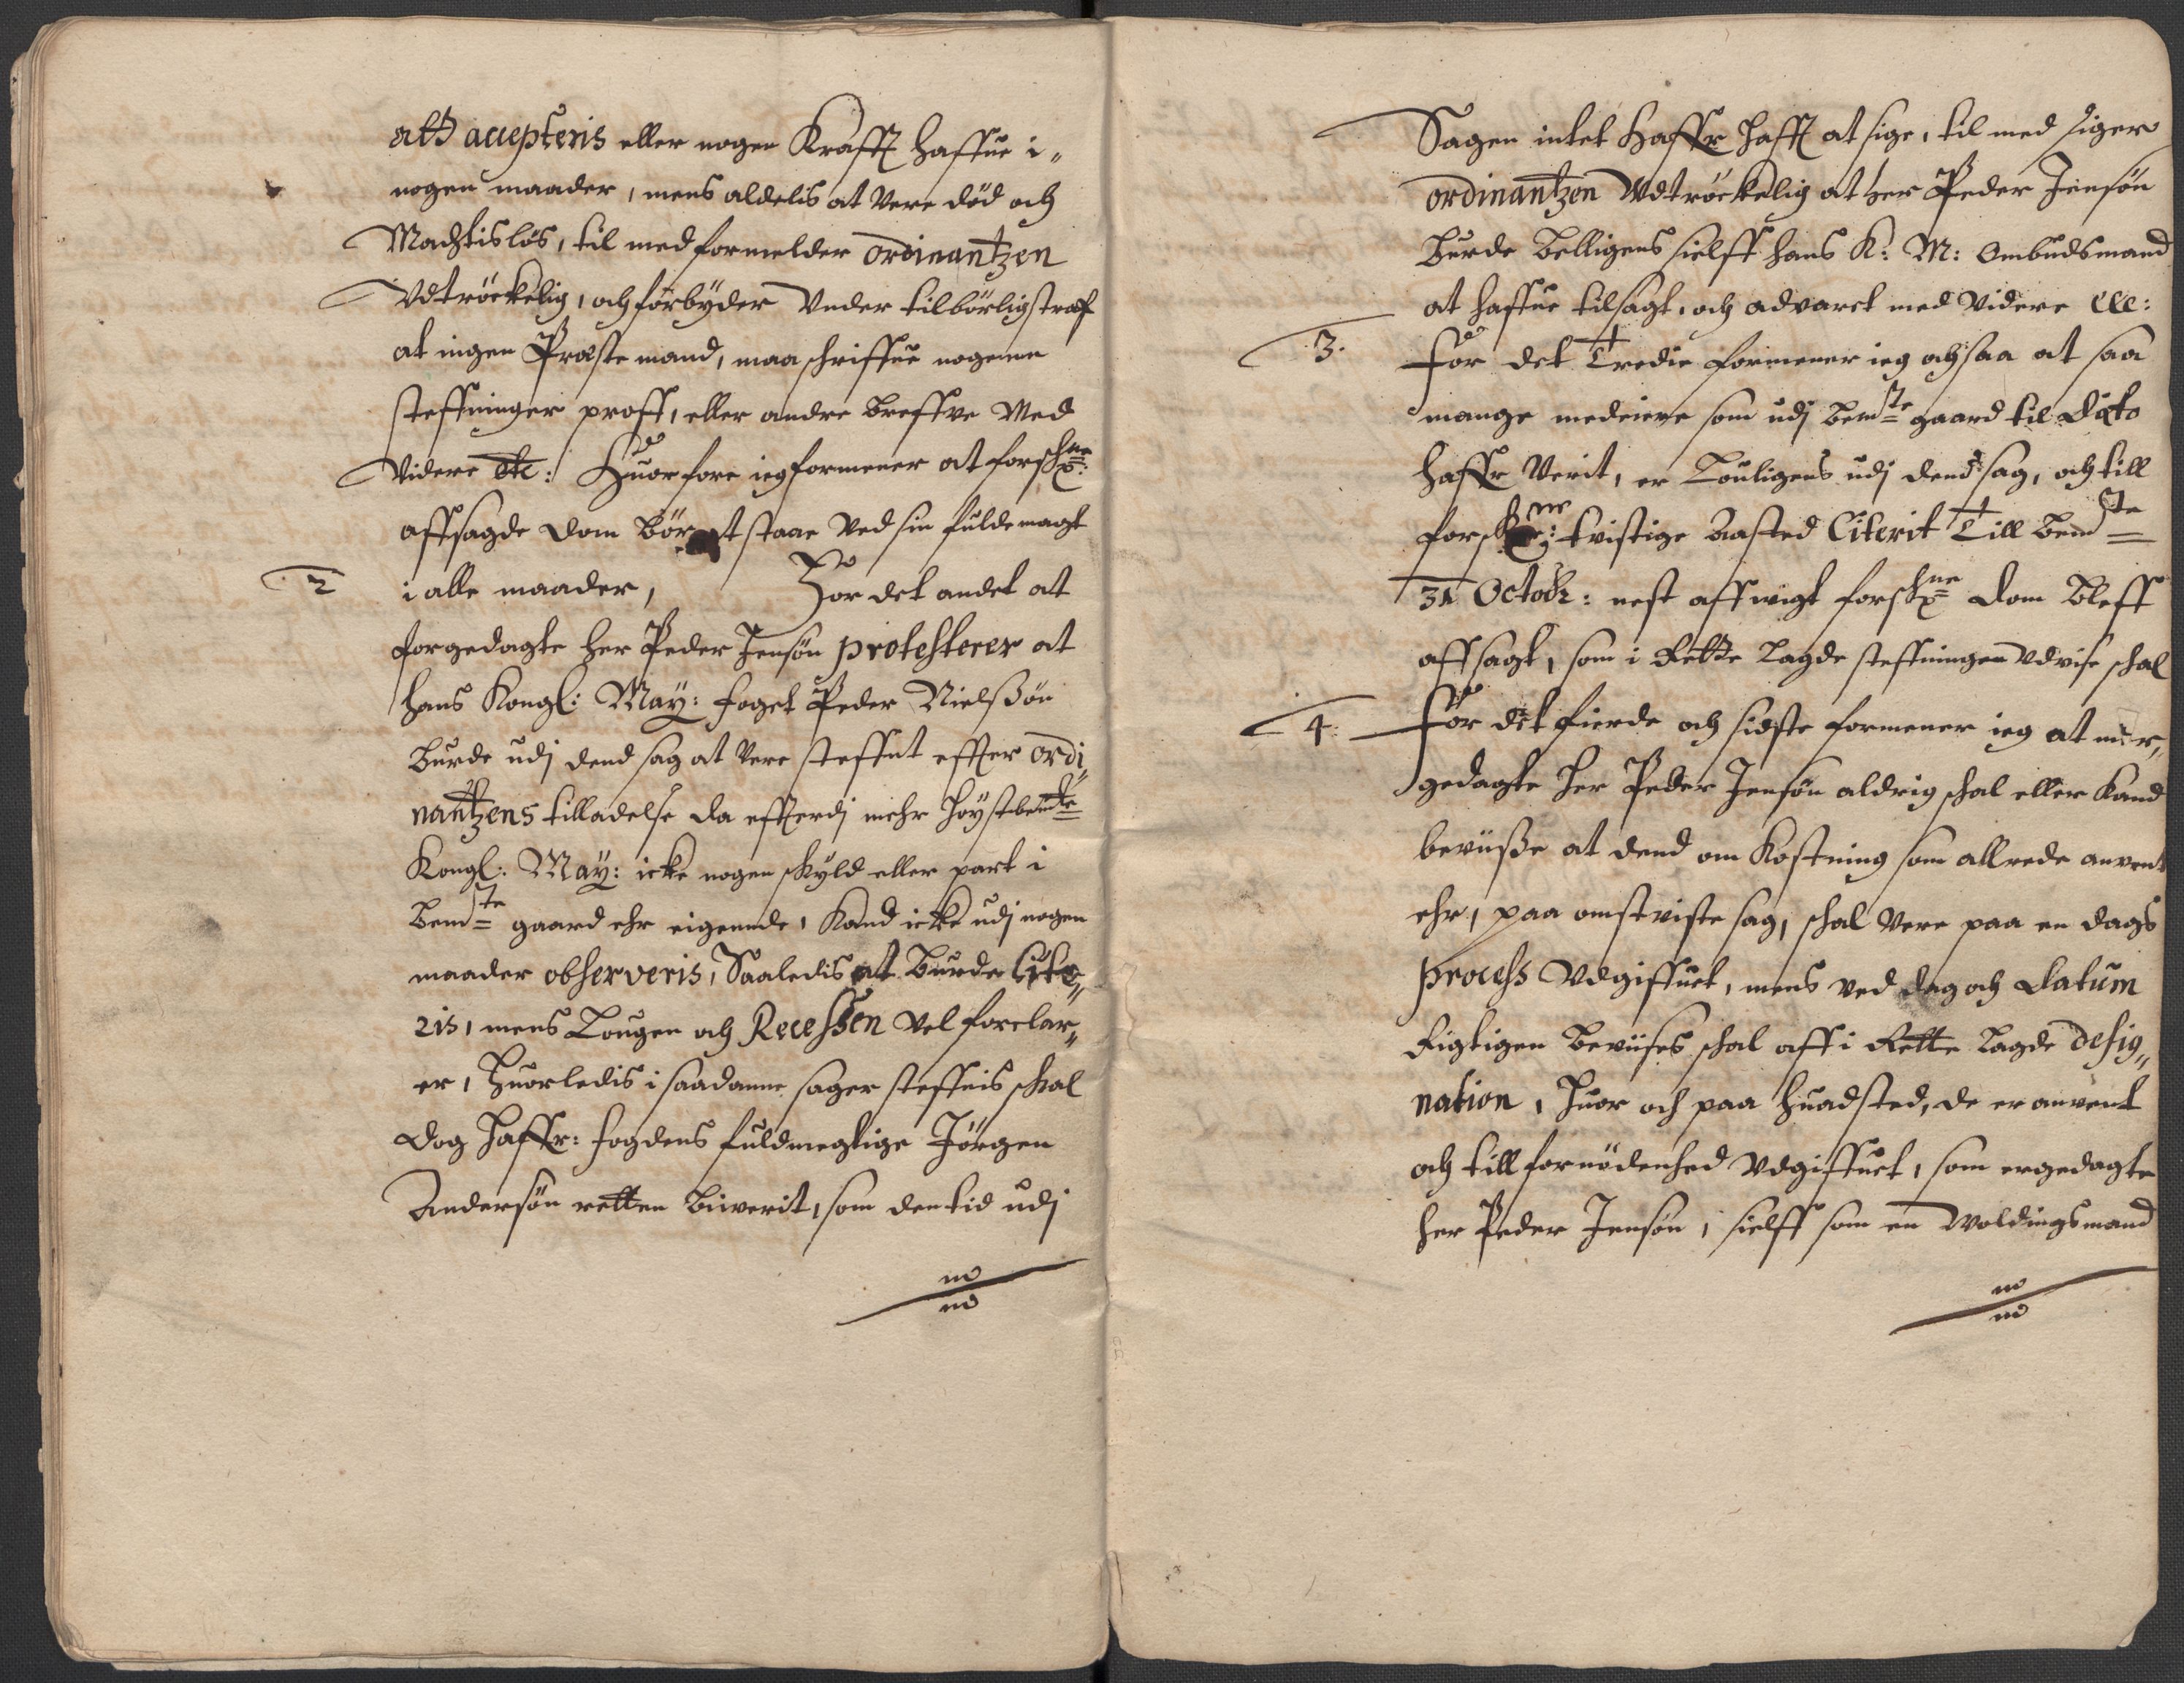 att accepteris eller nogen Krafft haffue i„
nogen maader, mens aldelis at Vere död och
Machtislös, til med formelder ordinantzen
Vdtröckelig, och förbÿder Vnder tilbörlig straf
at ingen Præste mand, maa schriffue nogenne
steffninger proff, eller andre breffve Med
Videre etc: Huorfore ieg formener at forschne:
affsagde dom bör at staae Ved sin fuldemagt
2 i alle maader, For det andet at
forgedagte her Peder Jensön protesterer at
hans Kongl: Maÿ: foget Peder Nielsßön
burde udj dend sag at Vere steffnt effter ordi„
nantzens tilladelse da effterdj mehr höÿstbemte
Kongl: Maÿ: icke nogen skÿld eller part i
bemte gaard ehr eigennde, Kand icke udj nogen
maader observeris, Saaledis at burde Cite„
ris, mens Lougen och Recessen Vel forclar„
er, Huorledis i saadanne sager steffnis schal
dog haffr: fogdens fuldmegtige Jörgen
Andersön retten biwerit, som den tid udj
Sagen intet haffr hafft at sige, til med siger
ordinantzen Vdtröckelig at her Peder Jensön
burde belligens sielff hans K: M: Ombudsmand
at haffue tilsagt, och advaret med Videre etc:
3. For det Tredie formener ieg och saa at saa
mange medeiere som udj bemte gaard til dato
haffr Verit, er Louligens udj dend sag, och till
forschne: tvistige aasted Citerit Till bemte
31 Octobr: nest affvigt forschne dom bleff
affsagt, som i Rette lagde steffningen Vdvise schal
4. For det fierde och sidste formener ieg at mer„
gedagte her Peder Jensön aldrig schal eller Kand
beviisße at dend om Kostning som allrede anvent
ehr, paa omtviste sag, schal Vere paa en dags
process Vdgiffuet, mens ved dag och datum
Rigtigen beviises schal aff i Rette lagde desig„
nation, huor och paa huad sted, de er anvent
och till fornödenhed Vdgiffuet, som ergedagte
her Peder Jensön, sielff som en Woldingsmand